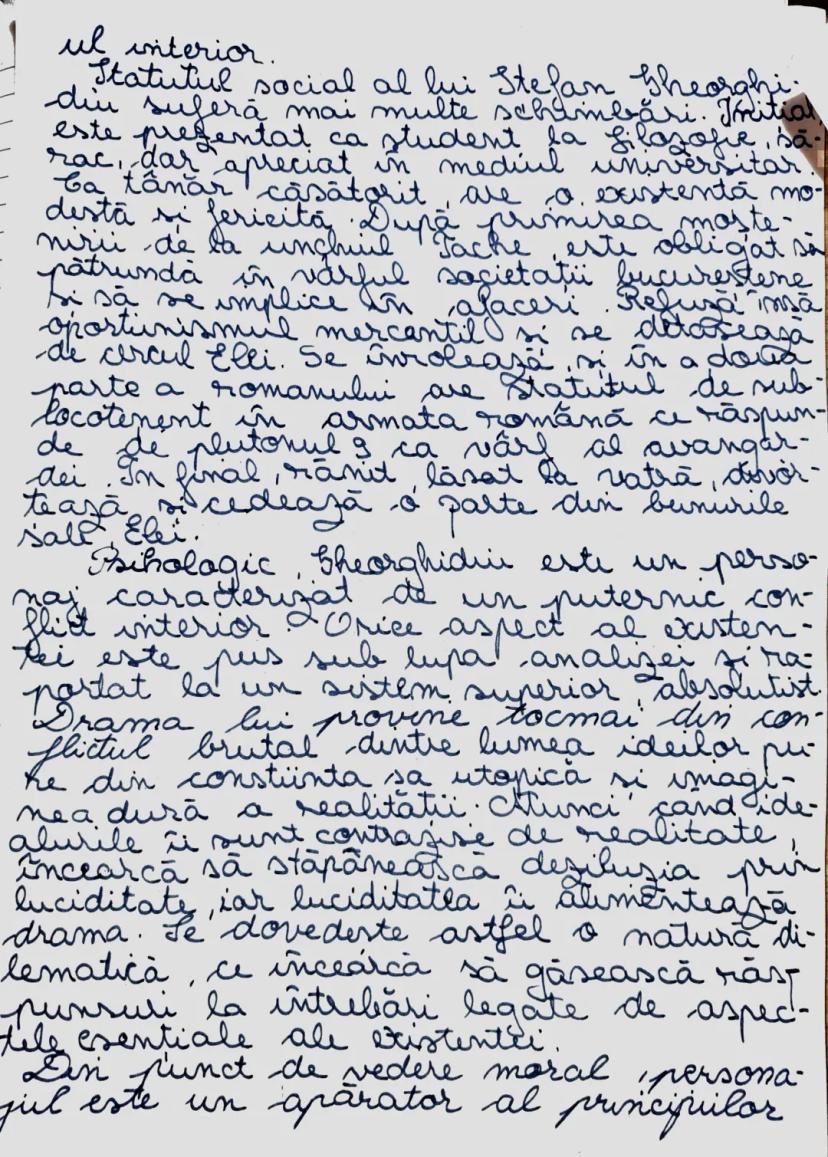 ul interior.
Statutul social al lui Ștefan Gheorghi-
diu suferă mai multe schimbări. Inițial,
este prezentat ca student la filozofie, să-
rac, dar apreciat în mediul universitar.
Ca tânăr căsătorit, are o existență mo-
destă și fericită. După primirea moște-
nirii de la unchiul Tache, este obligat să
pătrundă în vârful societății bucureștene
și să se implice în afaceri. Refuză însă
oportunismul mercantil și se detașează
de cercul Elei. Se înrolează, și în a doua
parte a romanului are statutul de sub-
locotenent în armata română ce răspun-
de de plutonul 9 ca vârf al avangăr-
dei. În final, rănit, lăsat la vatră, divor-
țează și cedează o parte din bunurile
sale Elei.
Psihologic, Gheorghidiu este un perso-
naj caracterizat de un puternic con-
flict interior. Orice aspect al existen-
ței este pus sub lupa analizei și ra-
portat la un sistem superior, absolutist.
Drama lui provine tocmai din con-
flictul brutal dintre lumea ideilor pu-
re din conștiința sa utopică și imagi-
nea dură a realității. Atunci când ide-
alurile îi sunt contrazise de realitate,
încearcă să stăpânească deziluzia prin
luciditate, iar luciditatea îi alimentează
drama. Se dovedește astfel o natură di-
lematică, ce încearcă să găsească răs-
punsuri la întrebări legate de aspec-
tele esențiale ale existenței.
Din punct de vedere moral, persona-
jul este un apărator al principiilor